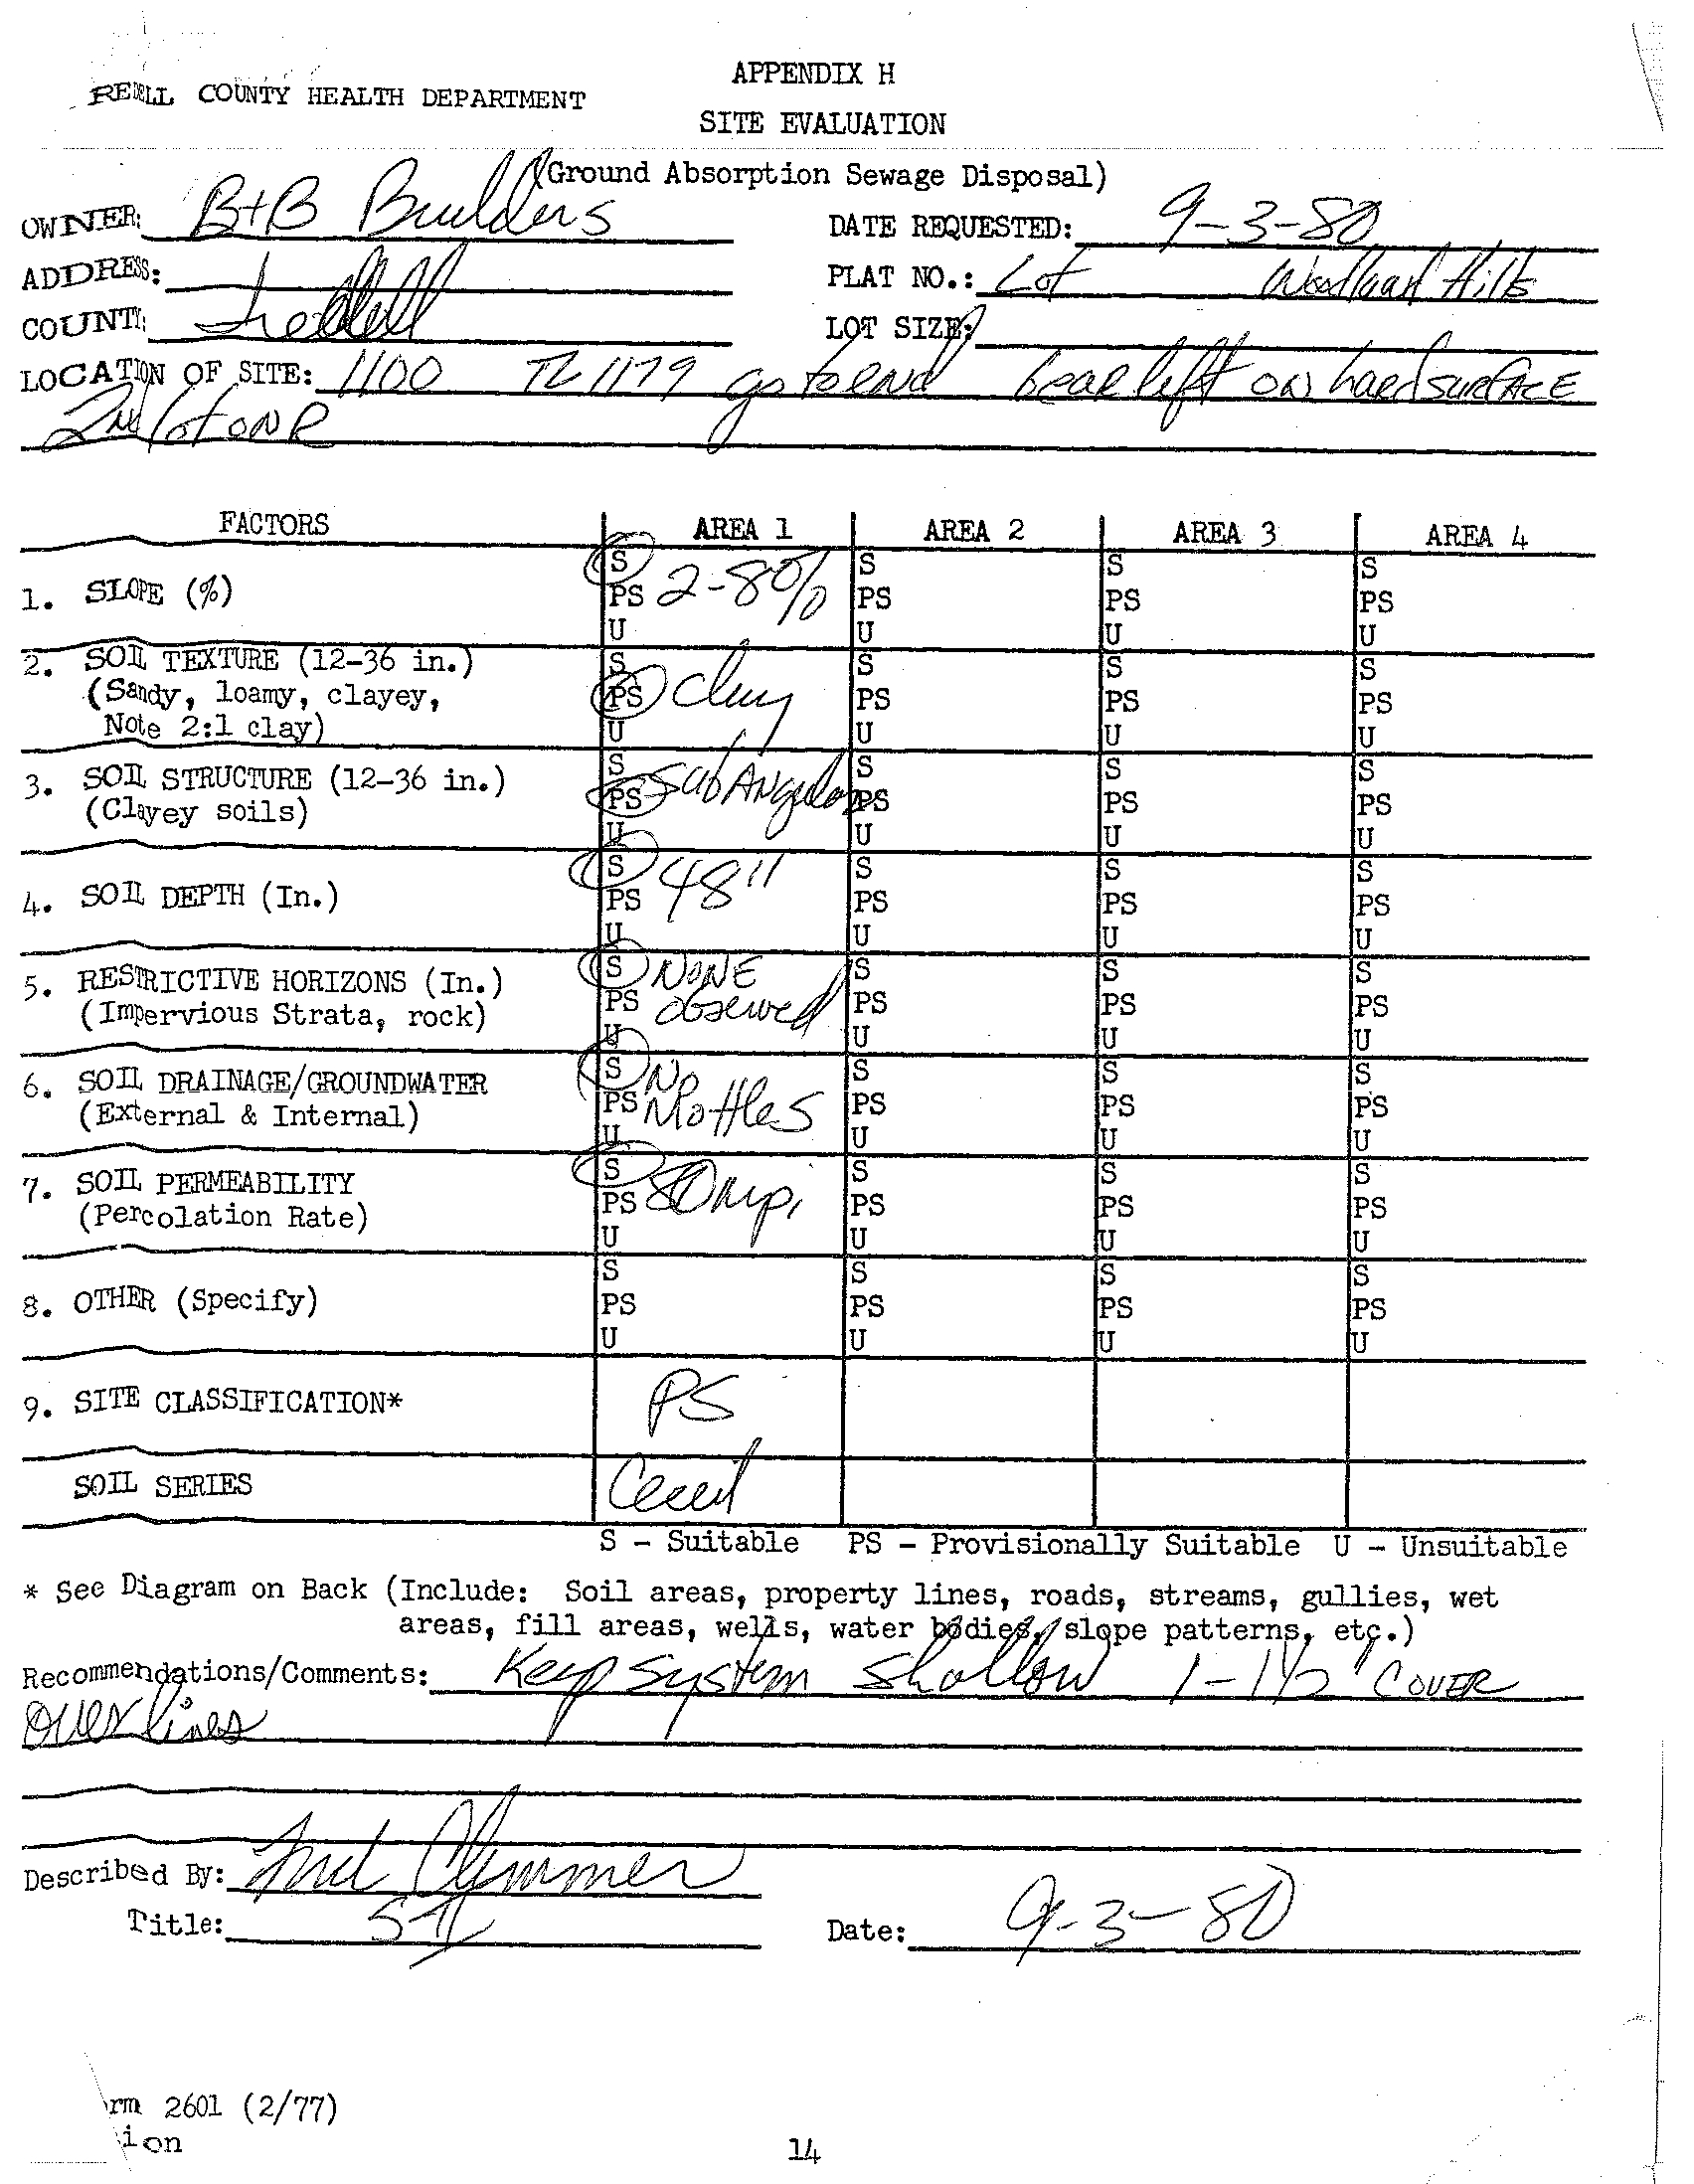 APPENDIX H
REDELL COUNTY HEALTH DEPARTMENT
SITE EVALUATION
(Ground Absorption Sewage Disposal)
OWNER: B+B Builders DATE REQUESTED: 9-3-80
ADDRESS: PLAT NO.: Lot Hills
COUNTY: Iredell LOT SIZE:
LOCATION OF SITE: 1100 TL 1179 go to end bear left on hard surface
2nd lot on R
FACTORS AREA 1 AREA 2 AREA 3 AREA 4
1. SLOPE (%) S PS U 2-8% S PS U S PS U S PS U
2. SOIL TEXTURE (12-36 in.) S PS U clay S PS U S PS U S PS U
(Sandy, loamy, clayey,
Note 2:1 clay)
3. SOIL STRUCTURE (12-36 in.) S PS U subAngular S PS U S PS U S PS U
(Clayey soils)
4. SOIL DEPTH (In.) S PS U 48" S PS U S PS U S PS U
5. RESTRICTIVE HORIZONS (In.) S PS U NONE observed S PS U S PS U S PS U
(Impervious Strata, rock)
6. SOIL DRAINAGE/GROUNDWATER S PS U No Mottles S PS U S PS U S PS U
(External & Internal)
7. SOIL PERMEABILITY S PS U 80 mpi S PS U S PS U S PS U
(Percolation Rate)
8. OTHER (Specify) S PS U S PS U S PS U S PS U
9. SITE CLASSIFICATION* PS
SOIL SERIES Cecil
S - Suitable PS - Provisionally Suitable U - Unsuitable
* See Diagram on Back (Include: Soil areas, property lines, roads, streams, gullies, wet
areas, fill areas, wells, water bodies, slope patterns, etc.)
Recommendations/Comments: Keep system shallow 1-1½' COVER
over lines
Described By: Clymmer
Title: Date: 9-3-80
rm 2601 (2/77)
ion
14